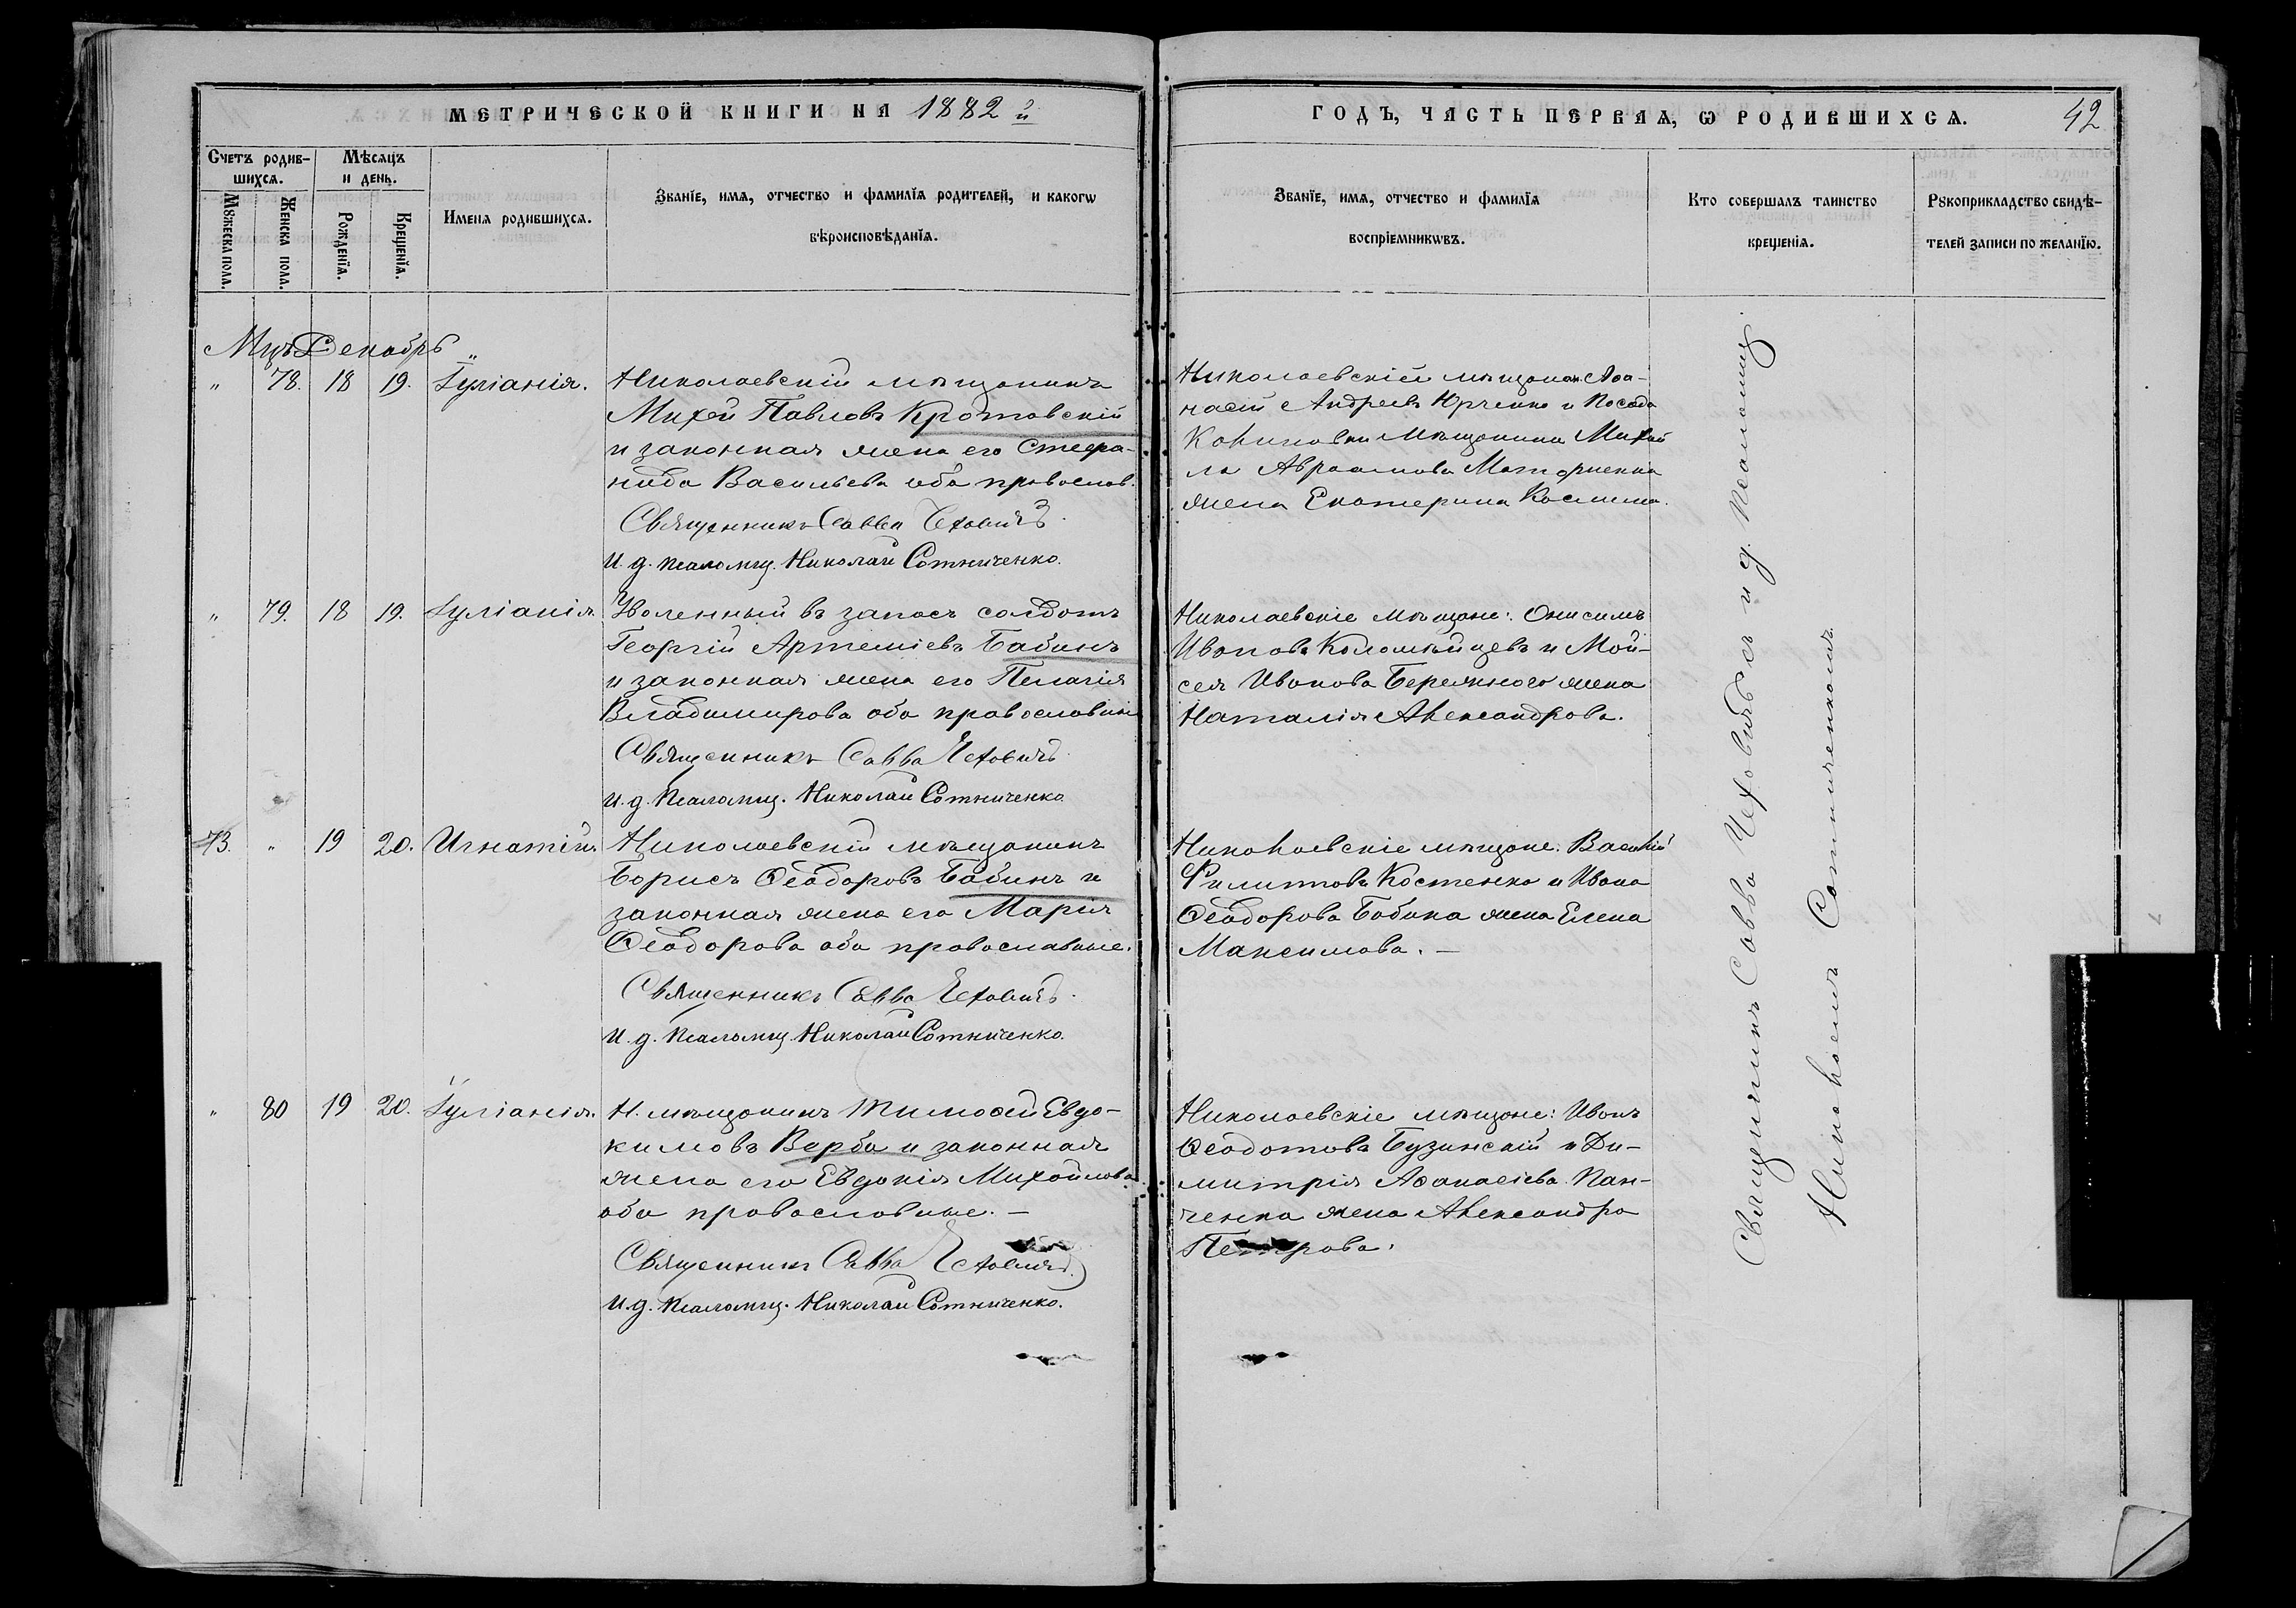 МЕТРИЧЕСКОЙ КНИГИ НА 1882 й
ГОДЪ, ЧАСТЬ ПЕРВАЯ, Ѡ РОДИВШИХСЯ. 42
Счетъ родив-
шихся.
Мꙋжеска пола.
Женска пола.
Мѣсяцъ
и день.
Рожденїя.
Крещенїя.
Имена родившихся.
Званїе, имя, отчество и фамилїя родителей, и какогѡ
вѣроисповѣданїя.
Званїе, имя, отчество и фамилїя
воспрїемникѡвъ.
Кто совершалъ таинство
крещенїя.
Рꙋкоприкладство свидѣ-
телей записи по желанїю.
Мцъ Декабрь
" 78. 18 19. Іуліанія.
Николаевскій мѣщанинъ
Михей Павловъ Кротовскій
и законная жена его Стефа-
нида Васильева оба православ.
Священникъ Савва Чеховичъ.
И. д. псаломщ. Николай Сотниченко.
Николаевскій мѣщан. Аѳа-
насій Андреевъ Юрченко и Посада
Калиновки мѣщанина Михаи
ла Авраамова жена Екатерина Космина.
" 79. 18 19. Іуліанія.
Уволенный въ запасъ солдатъ
Георгій Артеміевъ Бабинъ
и законная жена его Пелагія
Владимирова оба православные
Священникъ Савва Чеховичъ.
И. д. псаломщ. Николай Сотниченко
Николаевскіе мѣщане: Онисимъ
Ивановъ Коломійцевъ и Мои-
сея Иванова Бережного жена
Наталія Александрова.
73. " 19 20. Игнатій.
Николаевскій мѣщанинъ
Борисъ Ѳеодоровъ Бабинъ и
законная жена его Марія
Ѳеодорова оба православные.
Священникъ Савва Чеховичъ.
И. д. псаломщ. Николай Сотниченко.
Николаевскіе мѣщане: Василій
Филипповъ Костенко и Ивана
Ѳеодорова Бабина жена Елена
Максимова. —
" 80 19 20. Іуліанія.
Н. мѣщанинъ Тимоѳей Евдо-
кимовъ Верба и законная
жена его Евдокія Михайлова
оба православные. —
Священникъ Савва Чеховичъ.
И. д. псаломщ. Николай Сотниченко.
Николаевскіе мѣщане: Иванъ
Ѳеодотовъ Бузинскій и Ди-
митрія Аѳанасіева Пан-
ченка жена Александра
Петрова.
Священникъ Савва Чеховичъ съ и. д. псаломщ.
Николаемъ Сотниченкомъ.